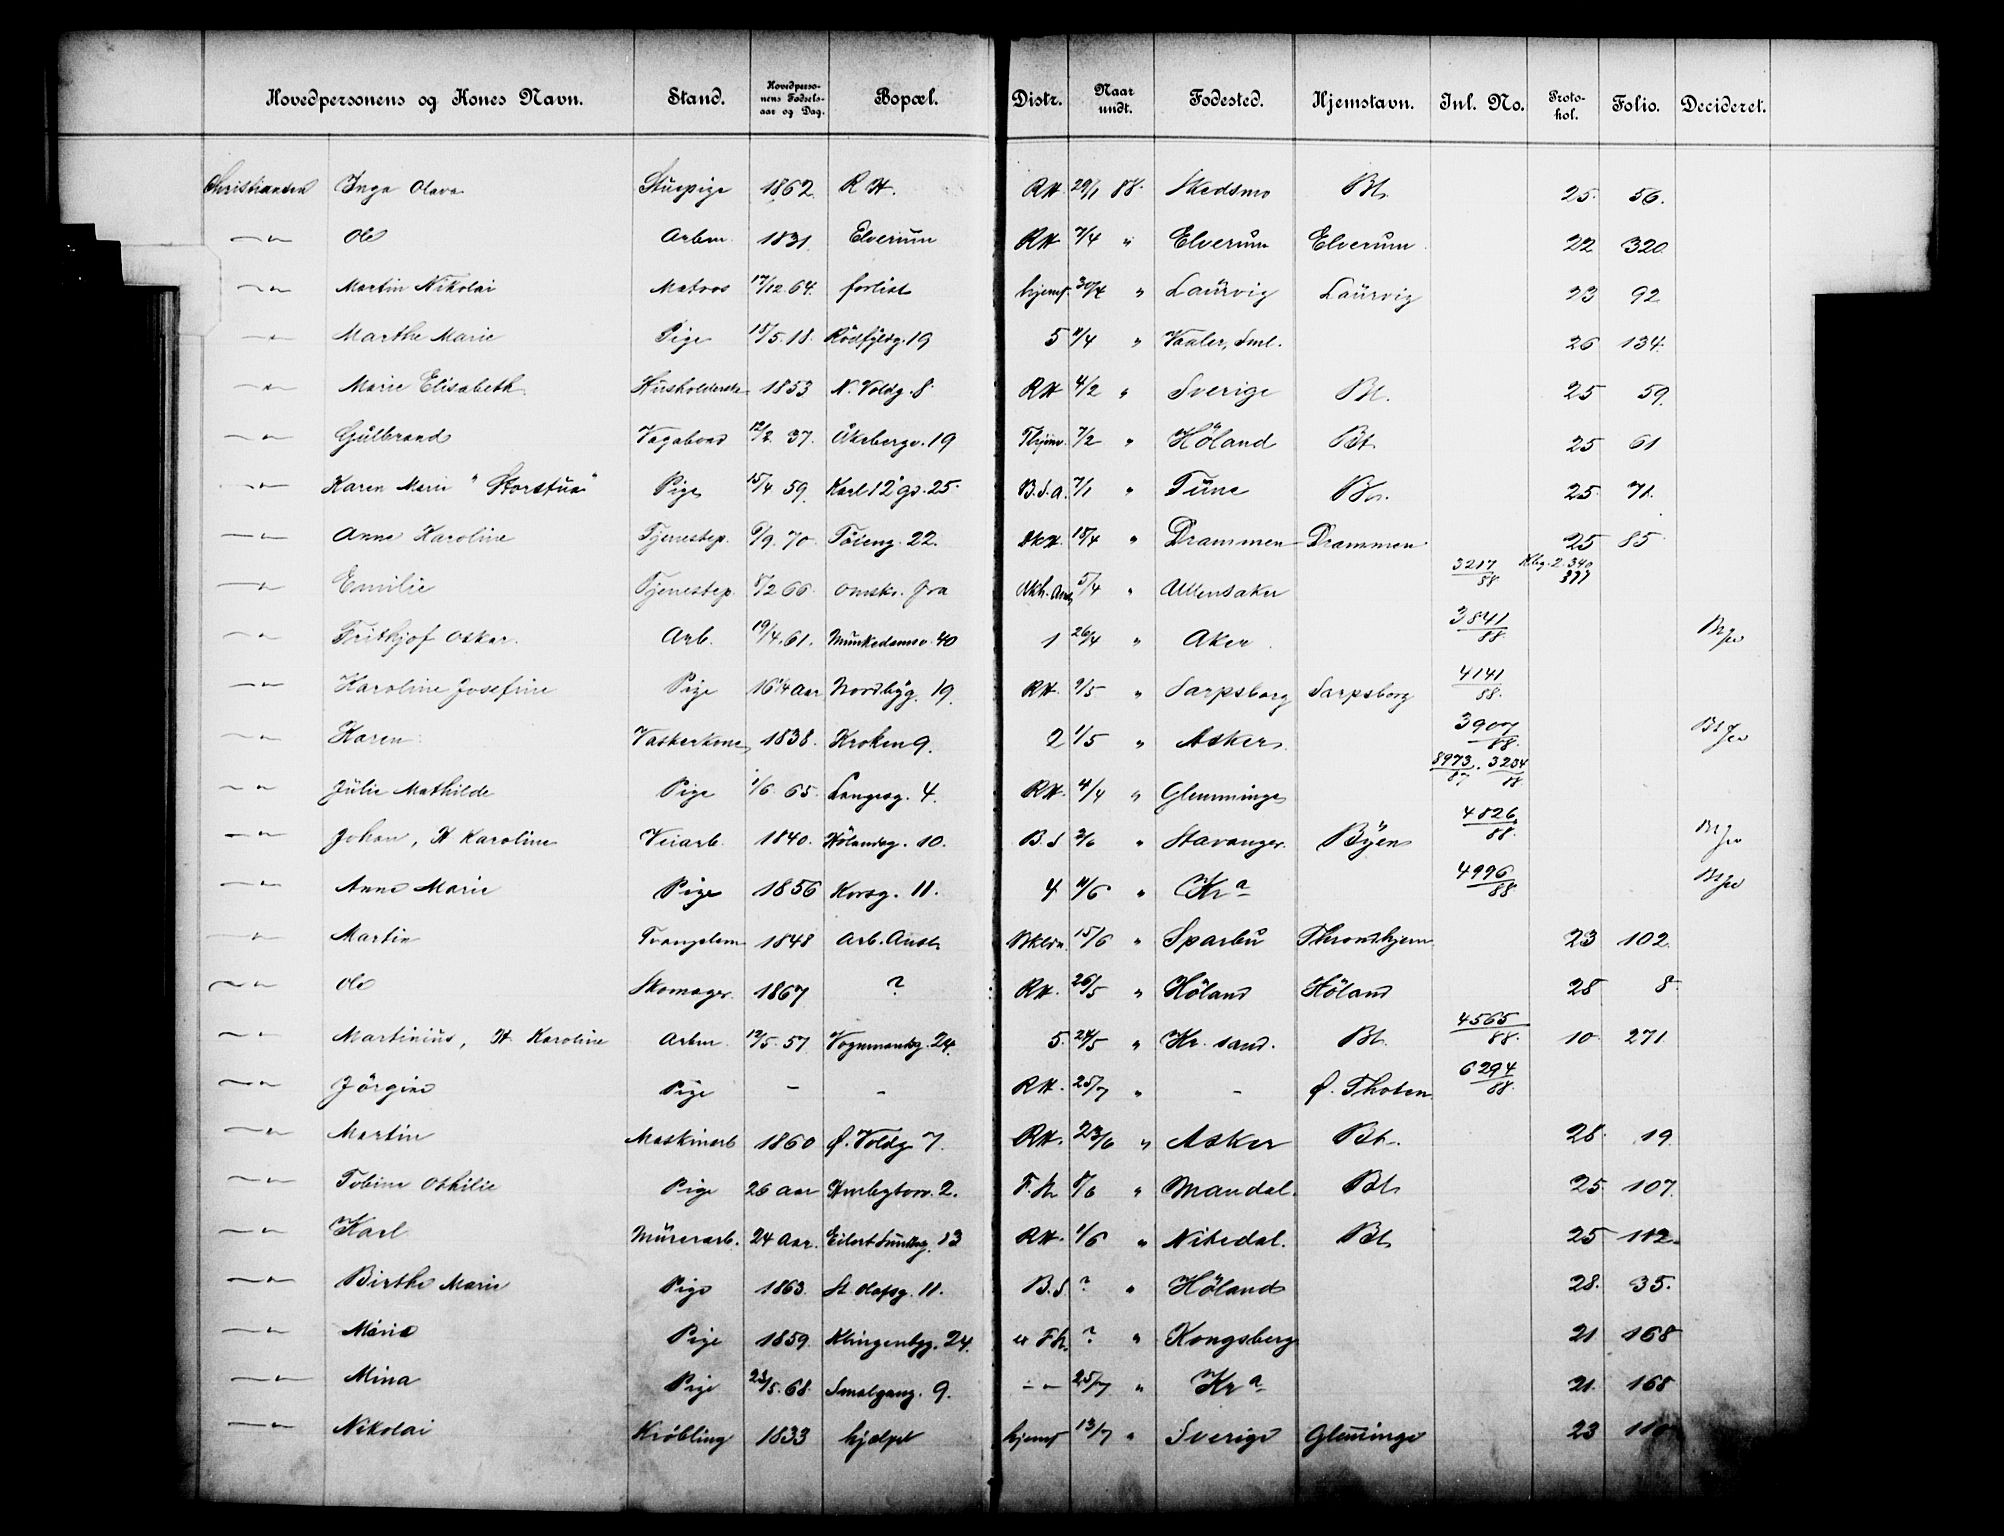 Hovedpersonens og Kones Navn. Stand. Hovedpersonens Fødselsaar og Dag. Bopæl. Distr. Naar undt. Fødested. Hjemstavn. Inl. No. Protokol. Folio. Decideret.
Christiansen Inga Olava Stuepige 1862 R H. RH. 29/1 88. Skedsmo Bt. 25. 56.
—„— Ole Arbm. 1831. Elverum RH. 7/4 „ Elverum Elverum 22 320
—„— Martin Nikolai Matros 17/12 64. forlist hjemf. 30/4 „ Laurvig Laurvig 23 92
—„— Marthe Marie Pige 15/5. 18. Rödfyldg. 19 5 11/4 „ Vaaler, Sml. 26 134.
—„— Marie Elisabeth Husholderske 1853 N. Voldg. 8. RH 4/2 „ Sverige Bt. 25 59.
—„— Gulbrand Vagabond 37. Åkebergv. 19 7/2 „ Höland Bt. 25 61
—„— Karen Marie "Storstua" Pige 15/4 59. Karl 12 gd. 25. B.S.A. 7/1 „ Tune Bt. 25. 71.
—„— Anne Karoline Tjenestep. 6/9. 70. Töieng. 22. 18/4 „ Drammen Drammen 25 85.
—„— Emilie Tjenestep. 8/2 66. omstr. fra 5/4 „ Ullensaker 3217/88 2. 340 377
—„— Frithjof Oskar. Arb. 19/4. 61. Munkedamsv. 40 1 26/4 „ Aker 3841/88. Bt
—„— Karoline Josefine Pige 16 1/4 Aar Nordbyg. 19. RH. 9/5 „ Sarpsborg Sarpsborg 4141/88.
—„— Karen Vaskerkone 1838. Kroken 9. 2 1/5 „ Asker 3907/88. Bt
—„— Julie Mathilde Pige 1/6. 65. Langesg. 4. RH. 4/4 „ Glemminge 8973/87. 3204/88
—„— Johan, H Karoline Veiarb. 1840. Hölandsg. 10. B.S 2/6 „ Stavanger. Byen 4826/88. Bt
—„— Anne Marie Pige 1856 Korsg. 11. 4 11/6 „ Kra 4996/88 Bt
—„— Martin Tvangslem 1848 Arb. Anst. 15/6 „ Sparbu Throndhjem 23 102.
—„— Ole Skomager. 1867 ? RH. 26/5 „ Höland Höland 28 8.
—„— Martinius, H Karoline Arbm 12/5. 57. Vognmandsg. 24. 5. 24/5 „ Kr. sand. Bt. 4565/88. 10. 271.
—„— Jörgine Pige – – RH. 25/7 „ – Ø. Thoten 6294/88.
—„— Martin Maskinarb 1860 Ø. Voldg 7. RH. 23/6 „ Asker Bt. 28. 19.
—„— Tobine Othilie Pige 26 Aar 2. F.h. 8/6 „ Mandal. Bt. 25. 107.
—„— Karl Murerarb. 24 Aar. Eilert Sundtsg. 13 RH. 1/6 „ Nitedal. Bt. 25 112.
—„— Birthe Marie Pige 1863. St. Olafsg. 11. B.S. ? „ Höland 28. 35.
—„— Marie Pige 1859. Klingenbgg. 24. F.h. ? „ Kongsberg 21 168
—„— Mina Pige 23/5. 68. Smalgang. 9. –„– 25/7 „ Kra 21. 168
—„— Nikolai Krøbling 1833 hjælpet hjemf 13/7 „ Sverige Glemminge 23